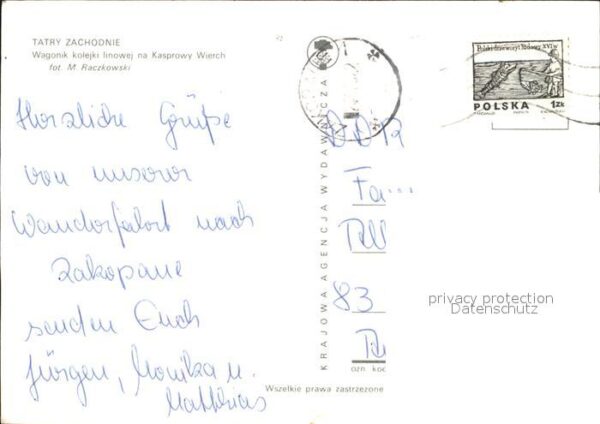 TATRY ZACHODNIE
Wagonik kolejki linowej na Kasprowy Wierch
fot. M. Raczkowski
Herzliche Grüße
von unserer
Wanderfahrt nach
Zakopane
senden Euch
Jürgen, Monika u.
Matthias
KRAJOWA AGENCJA WYDAWNICZA
Wszelkie prawa zastrzeżone
Polski drzeworyt ludowy XVI w.
POLSKA 1ZŁ
DDR
Fa...
83
privacy protection
Datenschutz